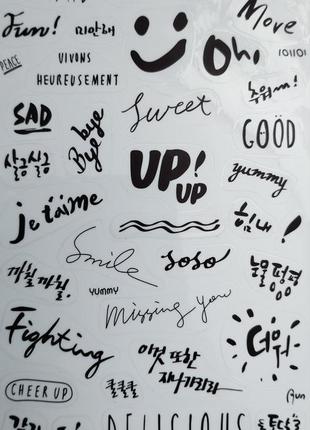 Move
Fun!
미안해
Oh!
PEACE
VIVONS
HEUREUSEMENT
추워...!
SAD
bye
Bye
Sweet
GOOD
살금살금
UP!
UP
yummy
je t'aime
힘내!
Smile
soso
눈물 펑펑
까칠 까칠.
YUMMY
Missing you
Fighting
이것 또한
지나가리라
더워
CHEER UP
쿨쿨쿨
Run
DELICIOUS